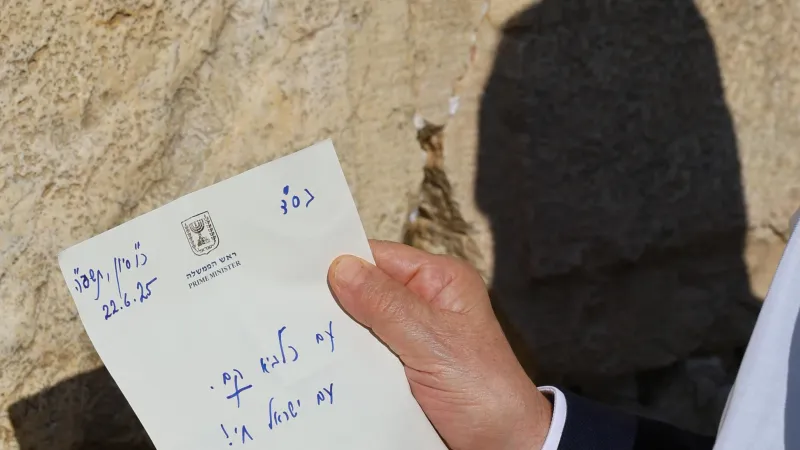 בס"ד
כ"ו סיון, תשפ"ה
22.6.25
ישראל
ראש הממשלה
PRIME MINISTER
עם כלביא קם.
עם ישראל חי!